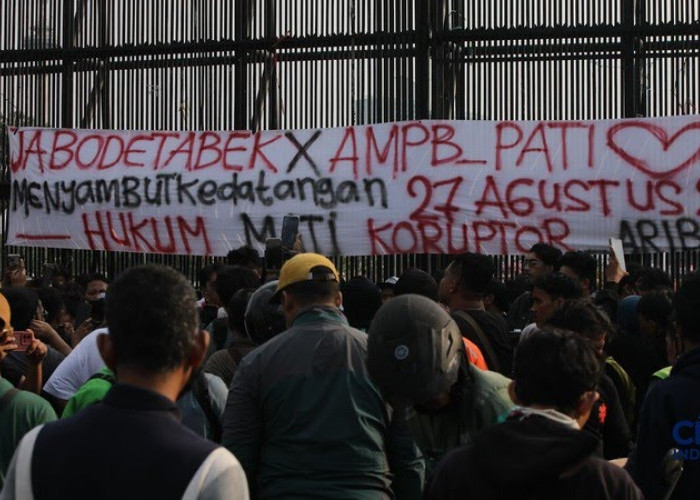 JABODETABEK X AMPB_PATI
MENYAMBUT KEDATANGAN 27 AGUSTUS
— HUKUM MATI KORUPTOR ARIB